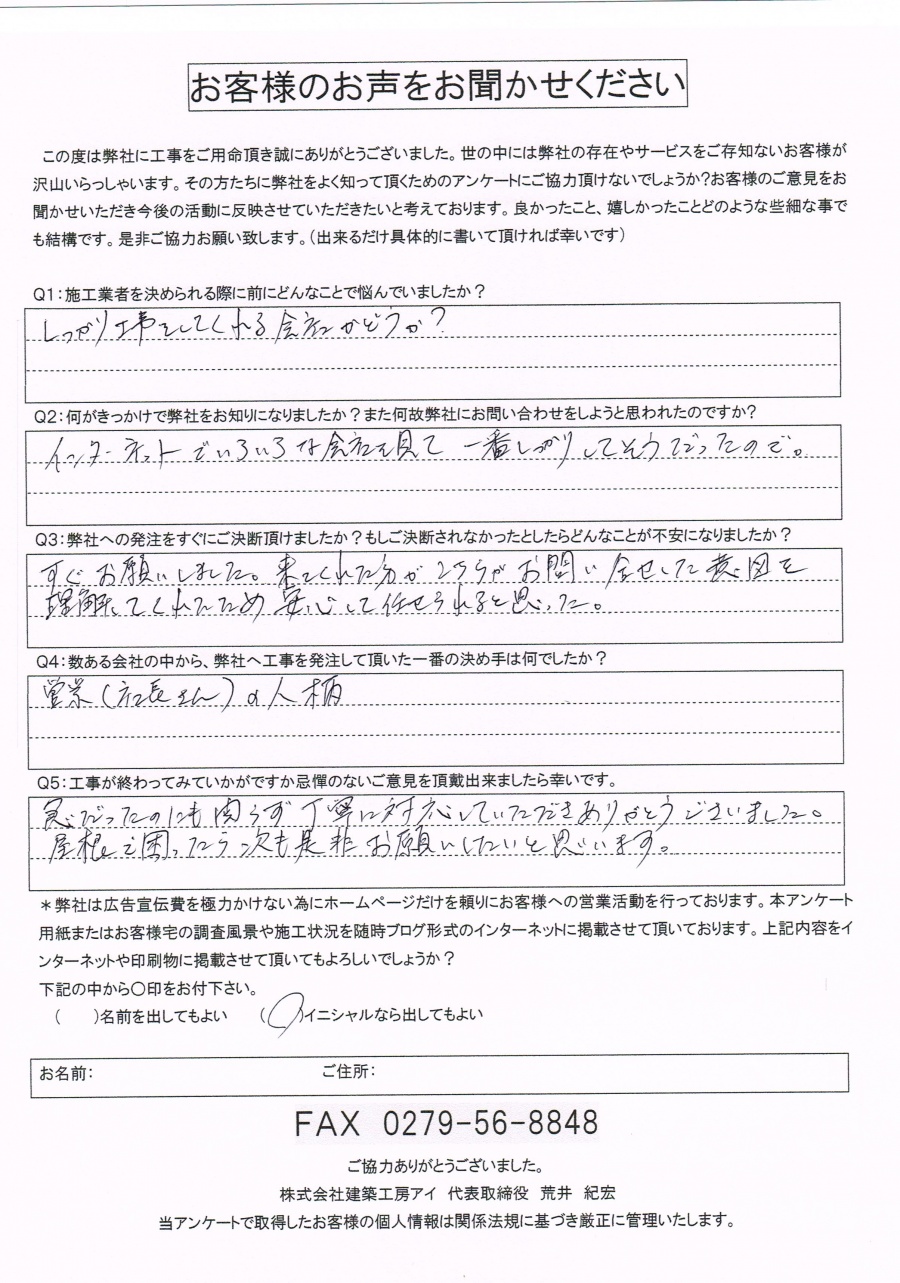 お客様のお声をお聞かせください
この度は弊社に工事をご用命頂き誠にありがとうございました。世の中には弊社の存在やサービスをご存知ないお客様が
沢山いらっしゃいます。その方たちに弊社をよく知って頂くためのアンケートにご協力頂けないでしょうか?お客様のご意見をお
聞かせいただき今後の活動に反映させていただきたいと考えております。良かったこと、嬉しかったことどのような些細な事で
も結構です。是非ご協力お願い致します。(出来るだけ具体的に書いて頂ければ幸いです)
Q1:施工業者を決められる際に前にどんなことで悩んでいましたか?
しっかり工事をしてくれる会社かどうか?
Q2:何がきっかけで弊社をお知りになりましたか?また何故弊社にお問い合わせをしようと思われたのですか?
インターネットでいろいろな会社を見て 一番しっかりしてそうだったので。
Q3:弊社への発注をすぐにご決断頂けましたか?もしご決断されなかったとしたらどんなことが不安になりましたか?
すぐお願いしました。来てくれた方がこちらがお問い合せした意図を
理解してくれたため安心して任せられると思った。
Q4:数ある会社の中から、弊社へ工事を発注して頂いた一番の決め手は何でしたか?
営業(社長さん)の人柄
Q5:工事が終わってみていかがですか忌憚のないご意見を頂戴出来ましたら幸いです。
急だったのにも関らず丁寧に対応していただきありがとうございました。
屋根で困ったら次も是非お願いしたいと思います。
*弊社は広告宣伝費を極力かけない為にホームページだけを頼りにお客様への営業活動を行っております。本アンケート
用紙またはお客様宅の調査風景や施工状況を随時ブログ形式のインターネットに掲載させて頂いております。上記内容をイ
ンターネットや印刷物に掲載させて頂いてもよろしいでしょうか?
下記の中から○印をお付下さい。
( )名前を出してもよい (○)イニシャルなら出してもよい
お名前: ご住所:
FAX 0279-56-8848
ご協力ありがとうございました。
株式会社建築工房アイ 代表取締役 荒井 紀宏
当アンケートで取得したお客様の個人情報は関係法規に基づき厳正に管理いたします。